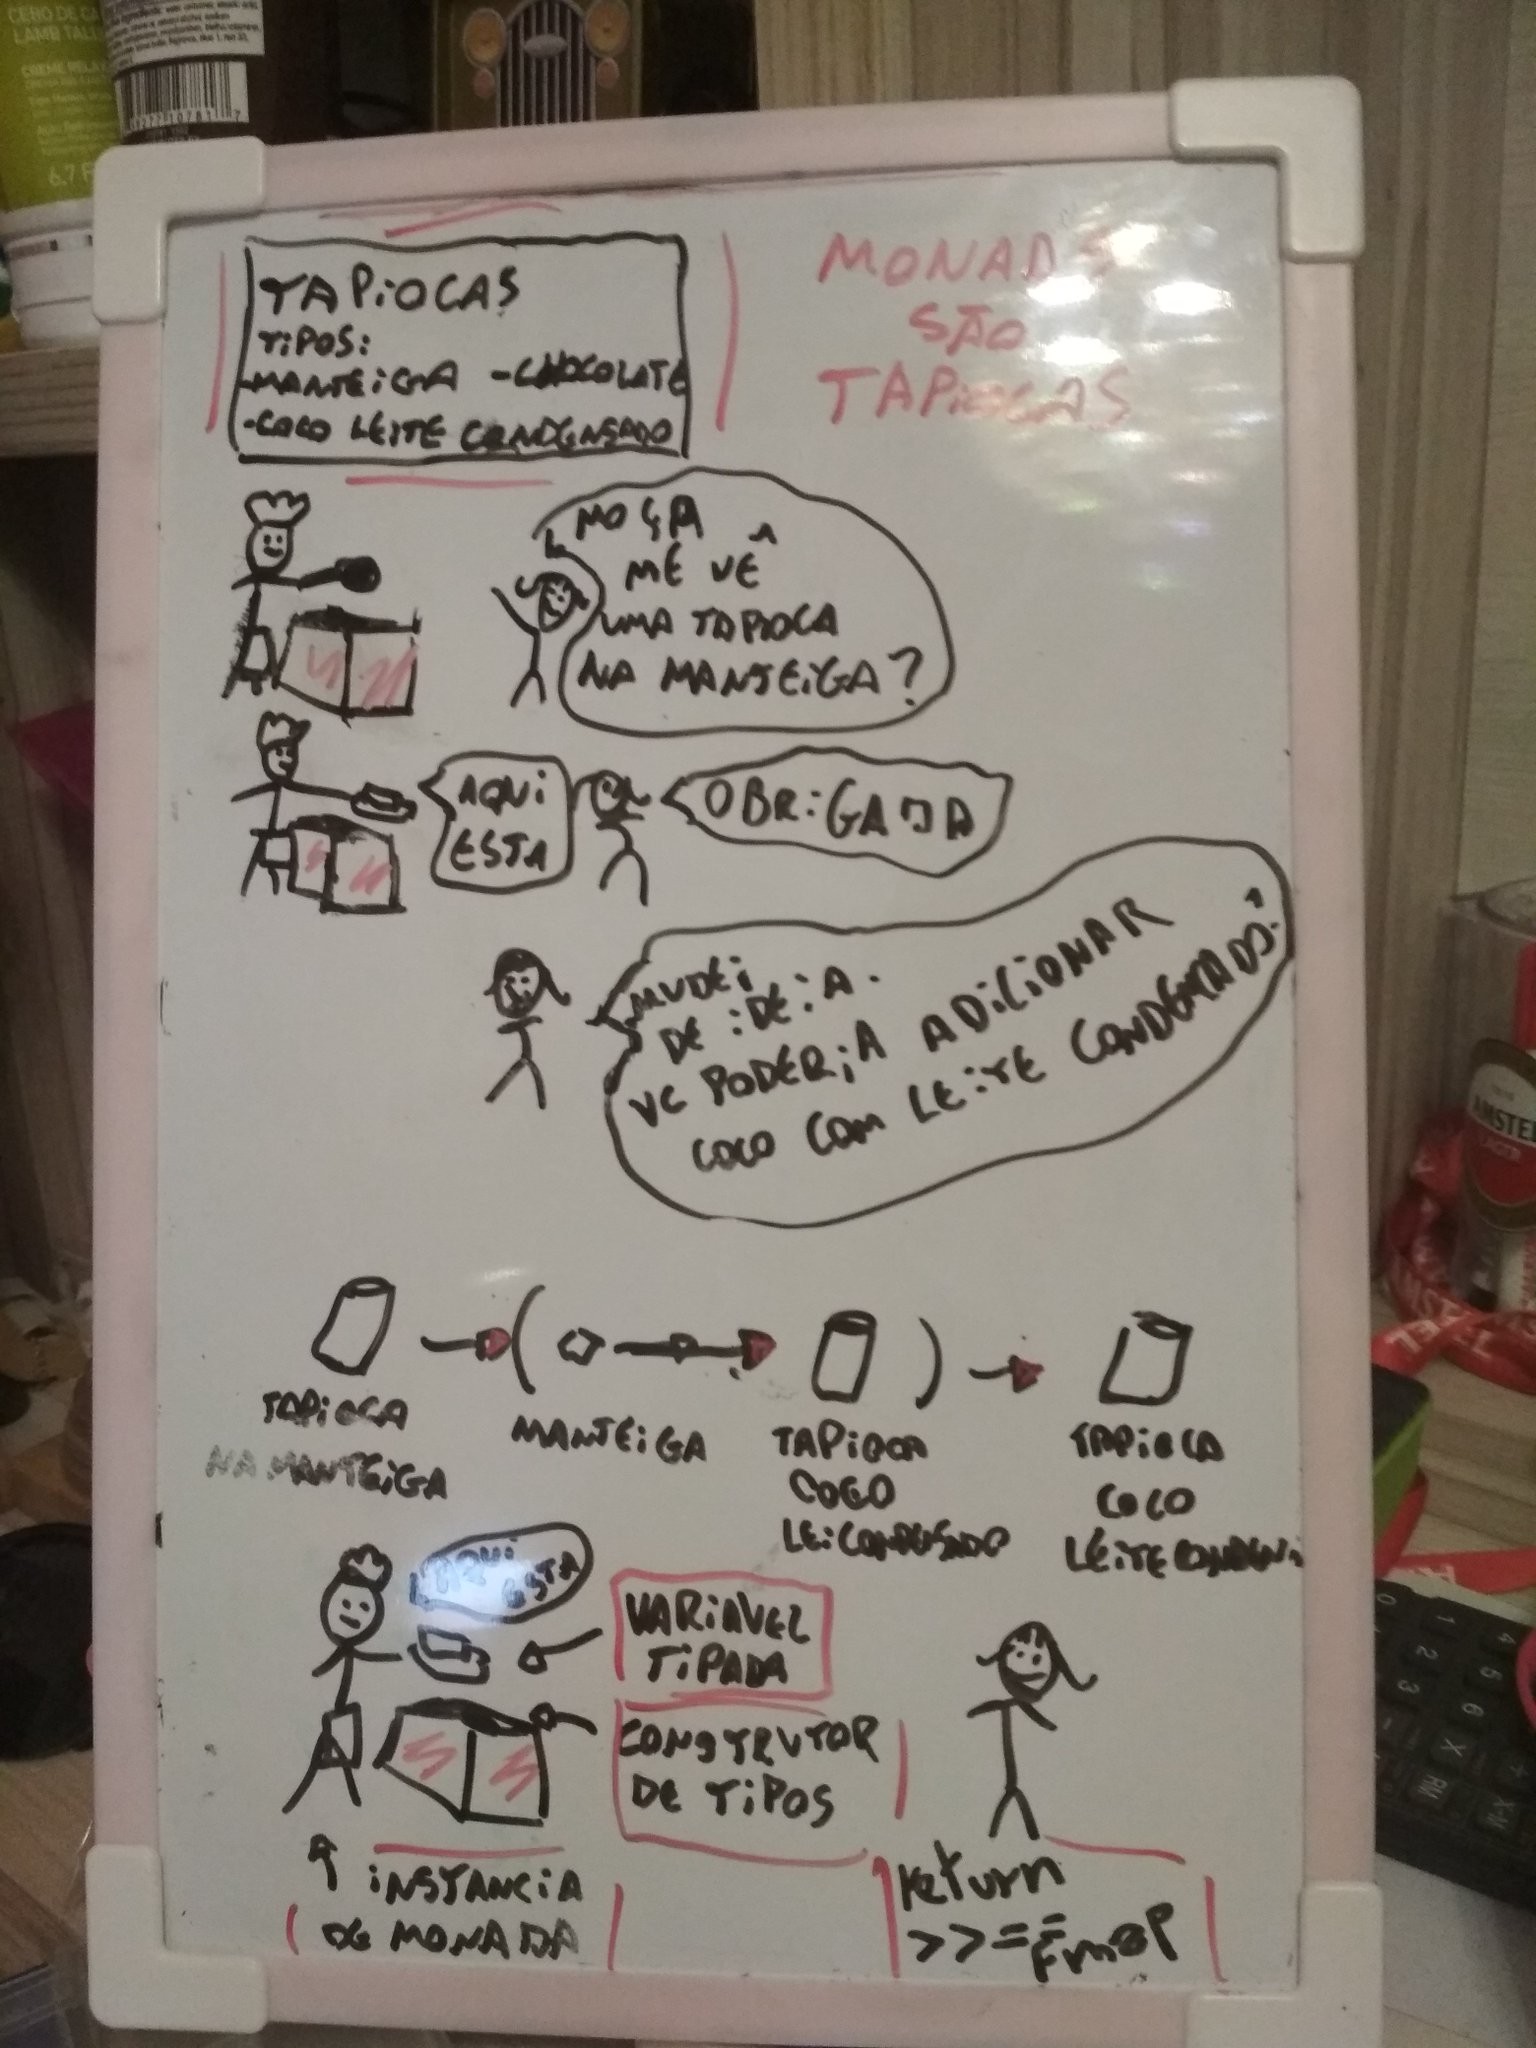 MONADS
SÃO
TAPIOCAS
TAPIOCAS
TIPOS:
-MANTEIGA -CHOCOLATE
-COCO LEITE CONDENSADO
MOÇA
ME VÊ
UMA TAPIOCA
NA MANTEIGA?
AQUI
ESTA
OBRIGADA
MUDEI
DE IDEIA.
VC PODERIA ADICIONAR
COCO COM LEITE
TAPIOCA
NA MANTEIGA
MANTEIGA
TAPIOCA
COCO
TAPIOCA
COCO
AQUI
ESTA
VARIAVEL
TIPADA
CONSTRUTOR
DE TIPOS
INSTANCIA
DE MONADA
return
>>=
Fmap
AMSTEL
6.7 F
CREME RELAX